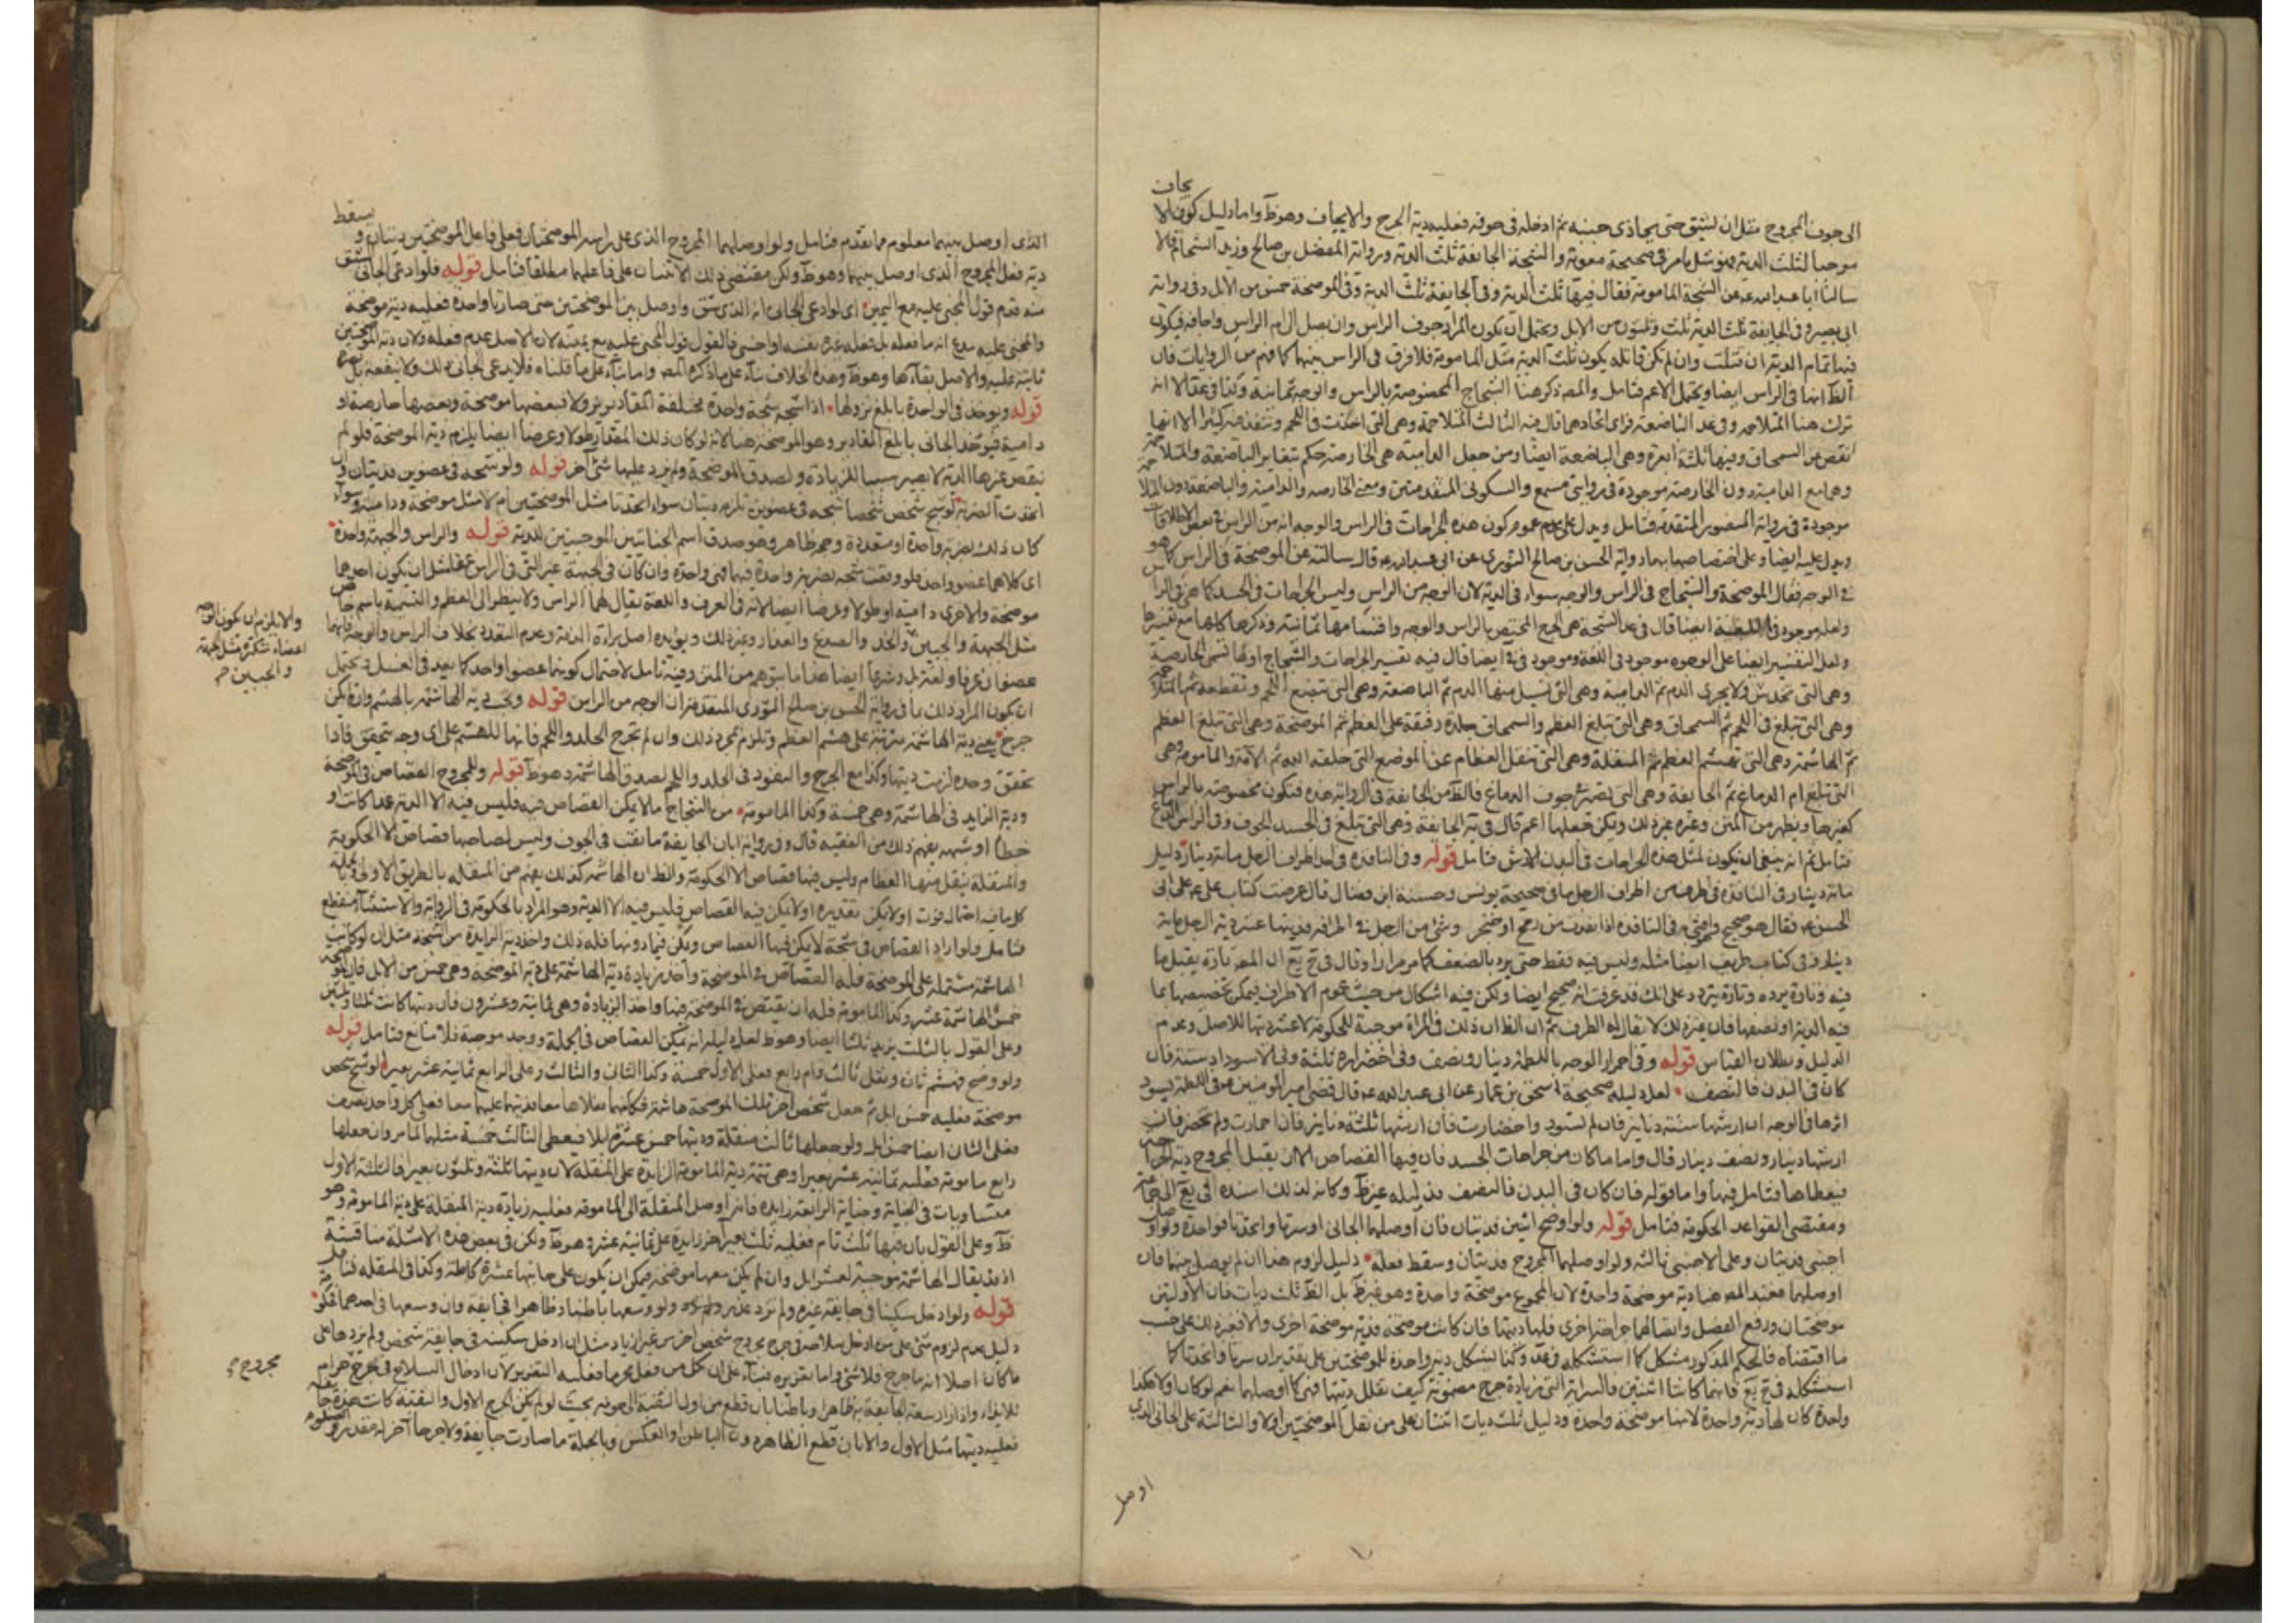 الى جوف المجروح مثل ان يشق حتى يحاذى جنبه ثم ادخله فى جوفه فعليه دية الجرح والايجاف وهو ظ واما دليل كون الا يجاف
موجبا لثلث الدية فهو مثل ما مر فى صحيحة معوية والشجة الجايفة ثلث الدية ورواية المفضل بن صالح وزيد الشحام قالا
سالنا ابا عبد الله عن الشجة المامومة فقال فيها ثلث الدية وفى الجايفة ثلث الدية وفى الموضحة خمس من الابل وفى رواية
ابى بصير وفى الجايفة ثلث الدية ثلث وثلثون من الابل ويحتمل ان يكون المراد جوف الراس وان يصل الى ام الراس واجافه فيكون
فيها تمام الدية ان قتلت وان لم تكن قاتله يكون ثلث الدية مثل المامومة فلا فرق فى الراس بينهما كما فهم من الروايات فان
الظ انها فى الراس ايضا ويحتمل الاعم فتامل والمصر ذكر هنا الشجاج المخصوصة بالراس والوجه ثمانية وكذا فى عد الا انه
ترك هنا المتلاحمة وفى عد الباضعة فراى اتحادهما قال فيه الثالث المتلاحمة وهى التى اخذت فى اللحم وتنفذ فيه كثيرا الا انها
انقص من السمحاق وفيها ثلثة ابعرة وهى الباضعة ايضا ومن جعل الدامية هى الخارصة حكم بتغاير الباضعة والمتلاحمة
وهما مع الدامية دون الخارصة موجودة فى روايتى مسمع والسكونى المتقدمتين ومعنى الخارصه والدامية والباضعة دون المتلاحمة
موجودة فى رواية المنصور المتقدمة فتامل ويدل على عدم عموم كون هذه الجراحات فى الراس والوجه انه من الراس فى بعض الاطلاقات
ويدل عليه ايضا وعلى اختصاصها بهما رواية الحسن بن صالح الثورى عن ابى عبد الله ع قال سالته عن الموضحة فى الراس كما هو
فى الوجه فقال الموضحة والشجاج فى الراس والوجه سواء فى الدية لان الوجه من الراس وليس الجراحات فى الجسد كما هى فى الراس
ولعله موجود فى اللغة ايضا قال فى عد الشجة هى الجرح المختص بالراس والوجه واقسامها ثمانية وذكرها كلها مع تفسيرها
ولعل التفسير ايضا على الوجوه موجود فى اللغة وموجود فى ايضا قال فيه تفسير الجراحات والشجاج اولها تسمى الحارصة
وهى التى تخدش ولا يجرى الدم ثم الدامية وهى التى تسيل منها الدم ثم الباضعة وهى التى تبضع اللحم وتقطعه ثم المتلاحمة
وهى التى تبلغ فى اللحم ثم السمحاق وهى التى تبلغ العظم والسمحاق جلدة رقيقة على العظم ثم الموضحة وهى التى تبلغ العظم
ثم الهاشمة وهى التى تهشم العظم ثم المنقلة وهى التى تنقل العظام عن الموضع التى خلقه الله ثم الآمة والمامومة وهى
التى تبلغ ام الدماغ ثم الجايفة وهى التى تصير فى جوف الدماغ فالظ من الجايفة فى الرواية هذه فتكون مخصوصة بالراس
كغيرها ويظهر من المتن وغيره غير ذلك ويمكن جعلها اعم قال فى ية الجايفة وهى التى تبلغ فى الجسد الجوف وفى الراس الدماغ
فتامل ثم انه ينبغى ان يكون لمثل هذه الجراحات فى البدن الارش فتامل قوله وفى النافذة فى احد اطراف الرجل مائة دينار دليل
مائة دينار فى النافذة فى اطرف من اطراف الرجل ما فى صحيحة يونس وحسنة ابن فضال قال عرضت كتاب على ع على ابى
الحسن ع فقال هو صحيح وقضى فى النافذه اذا نفذت من رمح او خنجر وشئ من الرجل فى اطرافه فديتها عشر دية الرجل مائة
دينار وفى كتاب ظريف ايضا مثله وليس فيه فقط حتى يرد بالضعف كما مر مرارا وقال فى ح يع ان المصر تارة يقبل ما
فيه وتارة يرده وتارة يتردد على انك قد عرفت انه صحيح ايضا ولكن فيه اشكال من حيث عموم الاطراف فيمكن تخصيصها بما
فيه الدية او نصفها فان غير ذلك لا يقال له الطرف ثم ان الظ ان ذلك فى المراة موجبة للحكومة لا عشر ديتها للاصل وعدم
الدليل وبطلان القياس قوله وفى احمرار الوجه باللطمة دينار ونصف وفى اخضراره ثلثة وفى الاسوداد ستة فان
كان فى البدن فالنصف لعل دليله صحيحة اسحق بن عمار عن ابى عبد الله ع قال قضى امير المؤمنين ع فى اللطمة يسود
اثرها فى الوجه ان ارشها ستة دنانير فان لم تسود واخضارت فان ارشها ثلثة دنانير فان احمارت ولم تخضر فان
ارشها دينار ونصف دينار قال واما ما كان من جراحات الجسد فان فيها القصاص الا ان يقبل المجروح دية الجراحة
فيعطاها فتامل فيها واما قوله فان كان فى البدن فالنصف فدليله غير ظ وكانه لذلك اسنده فى يع الى جماعة
ومقتضى القواعد الحكومة فتامل قوله ولو اوضح اثنين فديتان فان اوصلهما الجانى او سرتا واتحدتا فواحدة ولو اوصل
اجنبى فديتان وعلى الاجنبى ثالثه ولو اوصلهما المجروح فديتان وسقط فعله دليل لزوم هذا ان لم يوصل بينهما فان
اوصلهما فعند المصر هنا دية موضحة واحدة لان المجموع موضحة واحدة وهو غير ظ بل الظ ثلث ديات فان الاوليتين
موضحتان ورفع الفصل واتصالهما جراحة اخرى فلها ديتها فان كانت موضحة فدية موضحة اخرى والا فغير ذلك على حسب
ما اقتضاه فالحكم المذكور مشكل كما استشكله فى عد وكذا يشكل دية واحدة للموضحتين على تقدير ان سرتا واتحدتا كما
استشكله فى ح يع فانهما كانتا اثنتين فالسراية التى زيادة جرح مضمونة كيف تقلل ديتها فهى كما اوصلهما نعم لو كان اولا هكذا
واحدة كان لها دية واحدة لانها موضحة واحدة ودليل ثلث ديات اثنتان على من نقل الموضحتين اولا والثالثة على الجانى الذى
اوصل
الذى اوصل بينهما معلوم مما تقدم فتامل ولو اوصلهما المجروح الذى على راسه الموضحتان فعلى فاعل الموضحتين ديتان ويسقط
دية فعل المجروح الذى اوصل بينهما وهو ظ ولكن مقتضى ذلك الاثنتان على فاعلهما مطلقا فتامل قوله فلو ادعى الجانى الشق
منه قدم قول المجنى عليه مع اليمين اى لو ادعى الجانى انه الذى شق واوصل بين الموضحتين حتى صارتا واحدة فعليه دية موضحة
والمجنى عليه يدعى انه ما فعله بل فعله غيره بنفسه او اجنبى فالقول قول المجنى عليه مع يمينه لان الاصل عدم فعله ولان دية الموضحتين
ثابتة عليه والاصل بقاءها وهو ظ وهذه الخلاف بناء على ما ذكره المصر واما بناء على ما قلناه فلا يدعى الجانى ذلك ولا ينفعه بل يضره
قوله ويوخذ فى الواحدة بابلغ نزولها اذا شجه شجة واحدة مختلفة المقادير نزولا فبعضها موضحة وبعضها حارصة او
دامية فيؤخذ الجانى بابلغ المقادير وهو الموضحة هنا لانه لو كان ذلك المقدار طولا وعرضا ايضا يلزم دية الموضحة فلو لم
ينقص غيرها الدية لا يصير سببا للزيادة ولصدق الموضحة ولم يزد عليها شئ آخر قوله ولو شجه فى عضوين فديتان وان
اتحدت الضربة لو شج شخص شخصا شجه فى عضوين تلزمه ديتان سواء اتحدتا مثل الموضحتين ام لا مثل موضحة ودامية وسواء
كان ذلك بضربة واحدة او متعددة وهو ظاهر وهو صدق اسم الجنايتين الموجبتين للدية قوله والراس والجبهة واحدة
اى كلاهما عضو واحد فلو وقعت شجه بضربة واحدة فيهما فهى واحدة وان كان فى الجبهة غير التى فى الراس مثل ان يكون احدهما
موضحة والاخرى دامية او طولا وعرضا ايضا لانه فى العرف واللغة يقال لهما الراس ولا ينظر الى العظم والتسمية باسم خاص
مثل الجبهة والجبين والخد والصدغ والعذار وغير ذلك ويؤيده اصل براءة الذمة وعدم التعدد بخلاف الراس والوجه فانهما
عضوان عرفا ولغة بل وشرعا ايضا هذا ما يتوهم من المتن وفيه تامل لاحتمال كونهما عضوا واحدا كما يعد فى الغسل ويحتمل
ان يكون المراد ذلك ما فى رواية الحسن بن صالح الثورى المتقدمة ان الوجه من الراس قوله ويجب دية الهاشمة بالهشم وان لم يكن
جرح يعنى دية الهاشمة مترتبة على هشم العظم وتلزم بمجرد ذلك وان لم تجرح الجلد واللحم فانها للهشم على اى وجه يتحقق فاذا
تحقق وحده لزمت ديتها وكذا مع الجرح والنفوذ فى الجلد واللحم لصدق الهاشمة وهو ظ قوله وللمجروح القصاص فى الموضحة
ودية الزايد فى الهاشمة وهى خمسة وكذا المامومة من الشجاج ما لا يمكن القصاص فيه فليس فيه الا الدية عمدا كانت او
خطأ او شبهه يفهم ذلك من الفقيه قال وفى رواية ابان الجايفة ما نفت فى الجوف وليس لصاحبها قصاص الا الحكومة
والمنقلة ينقل منها العظام وليس فيها قصاص الا الحكومة والظ ان الهاشمة كذلك يفهم من المنقلة بالطريق الاولى وبالجملة
كل ما فيه احتمال فوت او لا يمكن تقديره او لا يمكن فيه القصاص فليس فيه الا الدية وهو المراد بالحكومة فى الرواية والاستثناء منقطع
فتامل ولو اراد القصاص فى شجة لا يمكن فيها القصاص ويمكن فيما دونها فله ذلك واخذ دية الزايدة من الشجة مثل ان لو كانت
الهاشمة مشتملة على الموضحة فله القصاص فى الموضحة واخذ زيادة دية الهاشمة على دية الموضحة وهى خمس من الابل فان الموضحة
خمس والهاشمة عشر وكذا المامومة فله ان يقتص فى الموضحة فيها واخذ الزيادة وهى ثمانية وعشرون فان ديتها كانت ثلثا وثلثين
وعلى القول بالثلث يزيد ثلثا ايضا وهو ظ لعل دليله انه يمكن القصاص فى الجملة ووجد موجبه فلا مانع فتامل قوله
ولو وضح فهشم ثان ونقل ثالث وام رابع فعلى الاول خمسة وكذا الثانى والثالث وعلى الرابع ثمانية عشر بعيرا لو شج شخص
موضحة فعليه خمس ابل ثم جعل شخص آخر تلك الموضحة هاشمة فكانهما فعلاها معا فديتها عليهما معا فعلى كل واحد نصف
فعلى الثانى ايضا خمس ابل ولو جعلها ثالث منقلة وديتها خمس عشرة ابلا فيعطى الثالث خمسة مثلها لما مر وان جعلها
رابع مامومة فعليه ثمانية عشر بعيرا وهى تتمة دية المامومة الزايدة على المنقلة لان ديتها ثلثة وثلثون بعيرا فالثلثة الاول
متساويات فى الجناية وجناية الرابعة زايدة فانه اوصل المنقلة الى المامومة فعليه زيادة دية المنقلة على دية المامومة وهو
ظ وعلى القول بان فيها ثلث تام فعليه ثلث بعير آخر زايدة على ثمانية عشر وهو ظ ولكن فى بعض هذه الامثلة مناقشة
اذ قد يقال الهاشمة موجبة لعشر ابل وان لم يكن معها موضحة فيمكن ان يكون على جانيها عشرة كاملة وكذا فى المنقلة فتامل
قوله ولو ادخل سكينا فى جايفة غيره ولم تزد عذر ولو وسعها باطنا او ظاهرا فجايفة وان وسعها فى احدهما فحكومة
دليل عدم لزوم شئ على من ادخل سلاحه فى جرح مجروح شخص آخر من غير ازدياد مثل ان ادخل سكينه فى جايفة شخص ولم يزدها على
ما كان اصلا انه ما جرح فلا شئ واما تعزيره فبناء على ان كل من فعل محرما فعليه التعزير لان ادخال السلاح فى جرح حرام
للايذاء واذا زاد سعة الجايفة ظاهرا وباطنا بان قطع من اول الثقبة الى جوفه بحيث لو لم يكن الجرح الاول والثقبة كانت هذه جايفة
فعليه ديتها مثل الاول والا بان قطع الظاهر دون الباطن او العكس وبالجملة ما صارت جايفة ولا جرحا آخر له مقدر
والا يلزم ان يكون الوجه
اعضاء متكثرة مثل الجبهة
والجبين م
مجروح